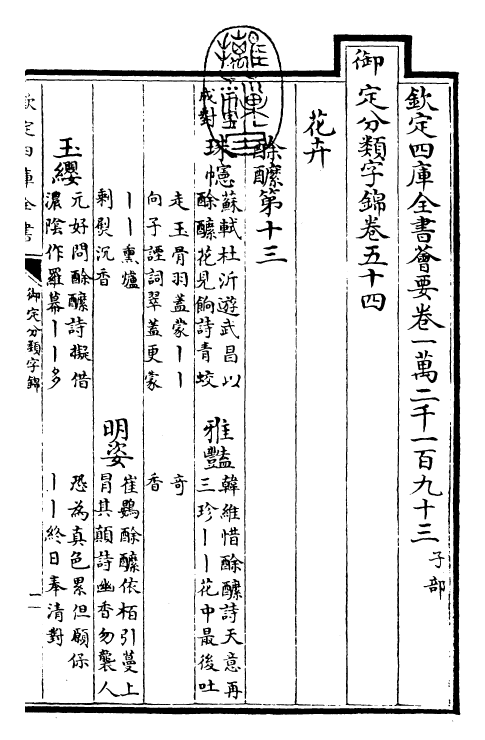 欽定四庫全書薈要卷一萬二千一百九十三 子部
御定分類字錦卷五十四
花卉
酴醿第十三
成對
珠幰 蘇軾杜沂遊武昌以
酴醿花見餉詩青蛟
走玉骨羽蓋蒙丨丨
向子諲詞翠蓋更蒙
丨丨熏爐
剩熨沉香
玉纓 元好問酴醿詩擬借
濃陰作羅幕丨丨多
雅豔 韓維惜酴醿詩天意再
三珍丨丨花中最後吐
奇
香
明姿 崔鶠酴醿依栢引蔓上
冒其顛詩幽香勿襲人
恐為真色累但願保
丨丨終日奉清對
欽定四庫全書
御定分類字錦
一